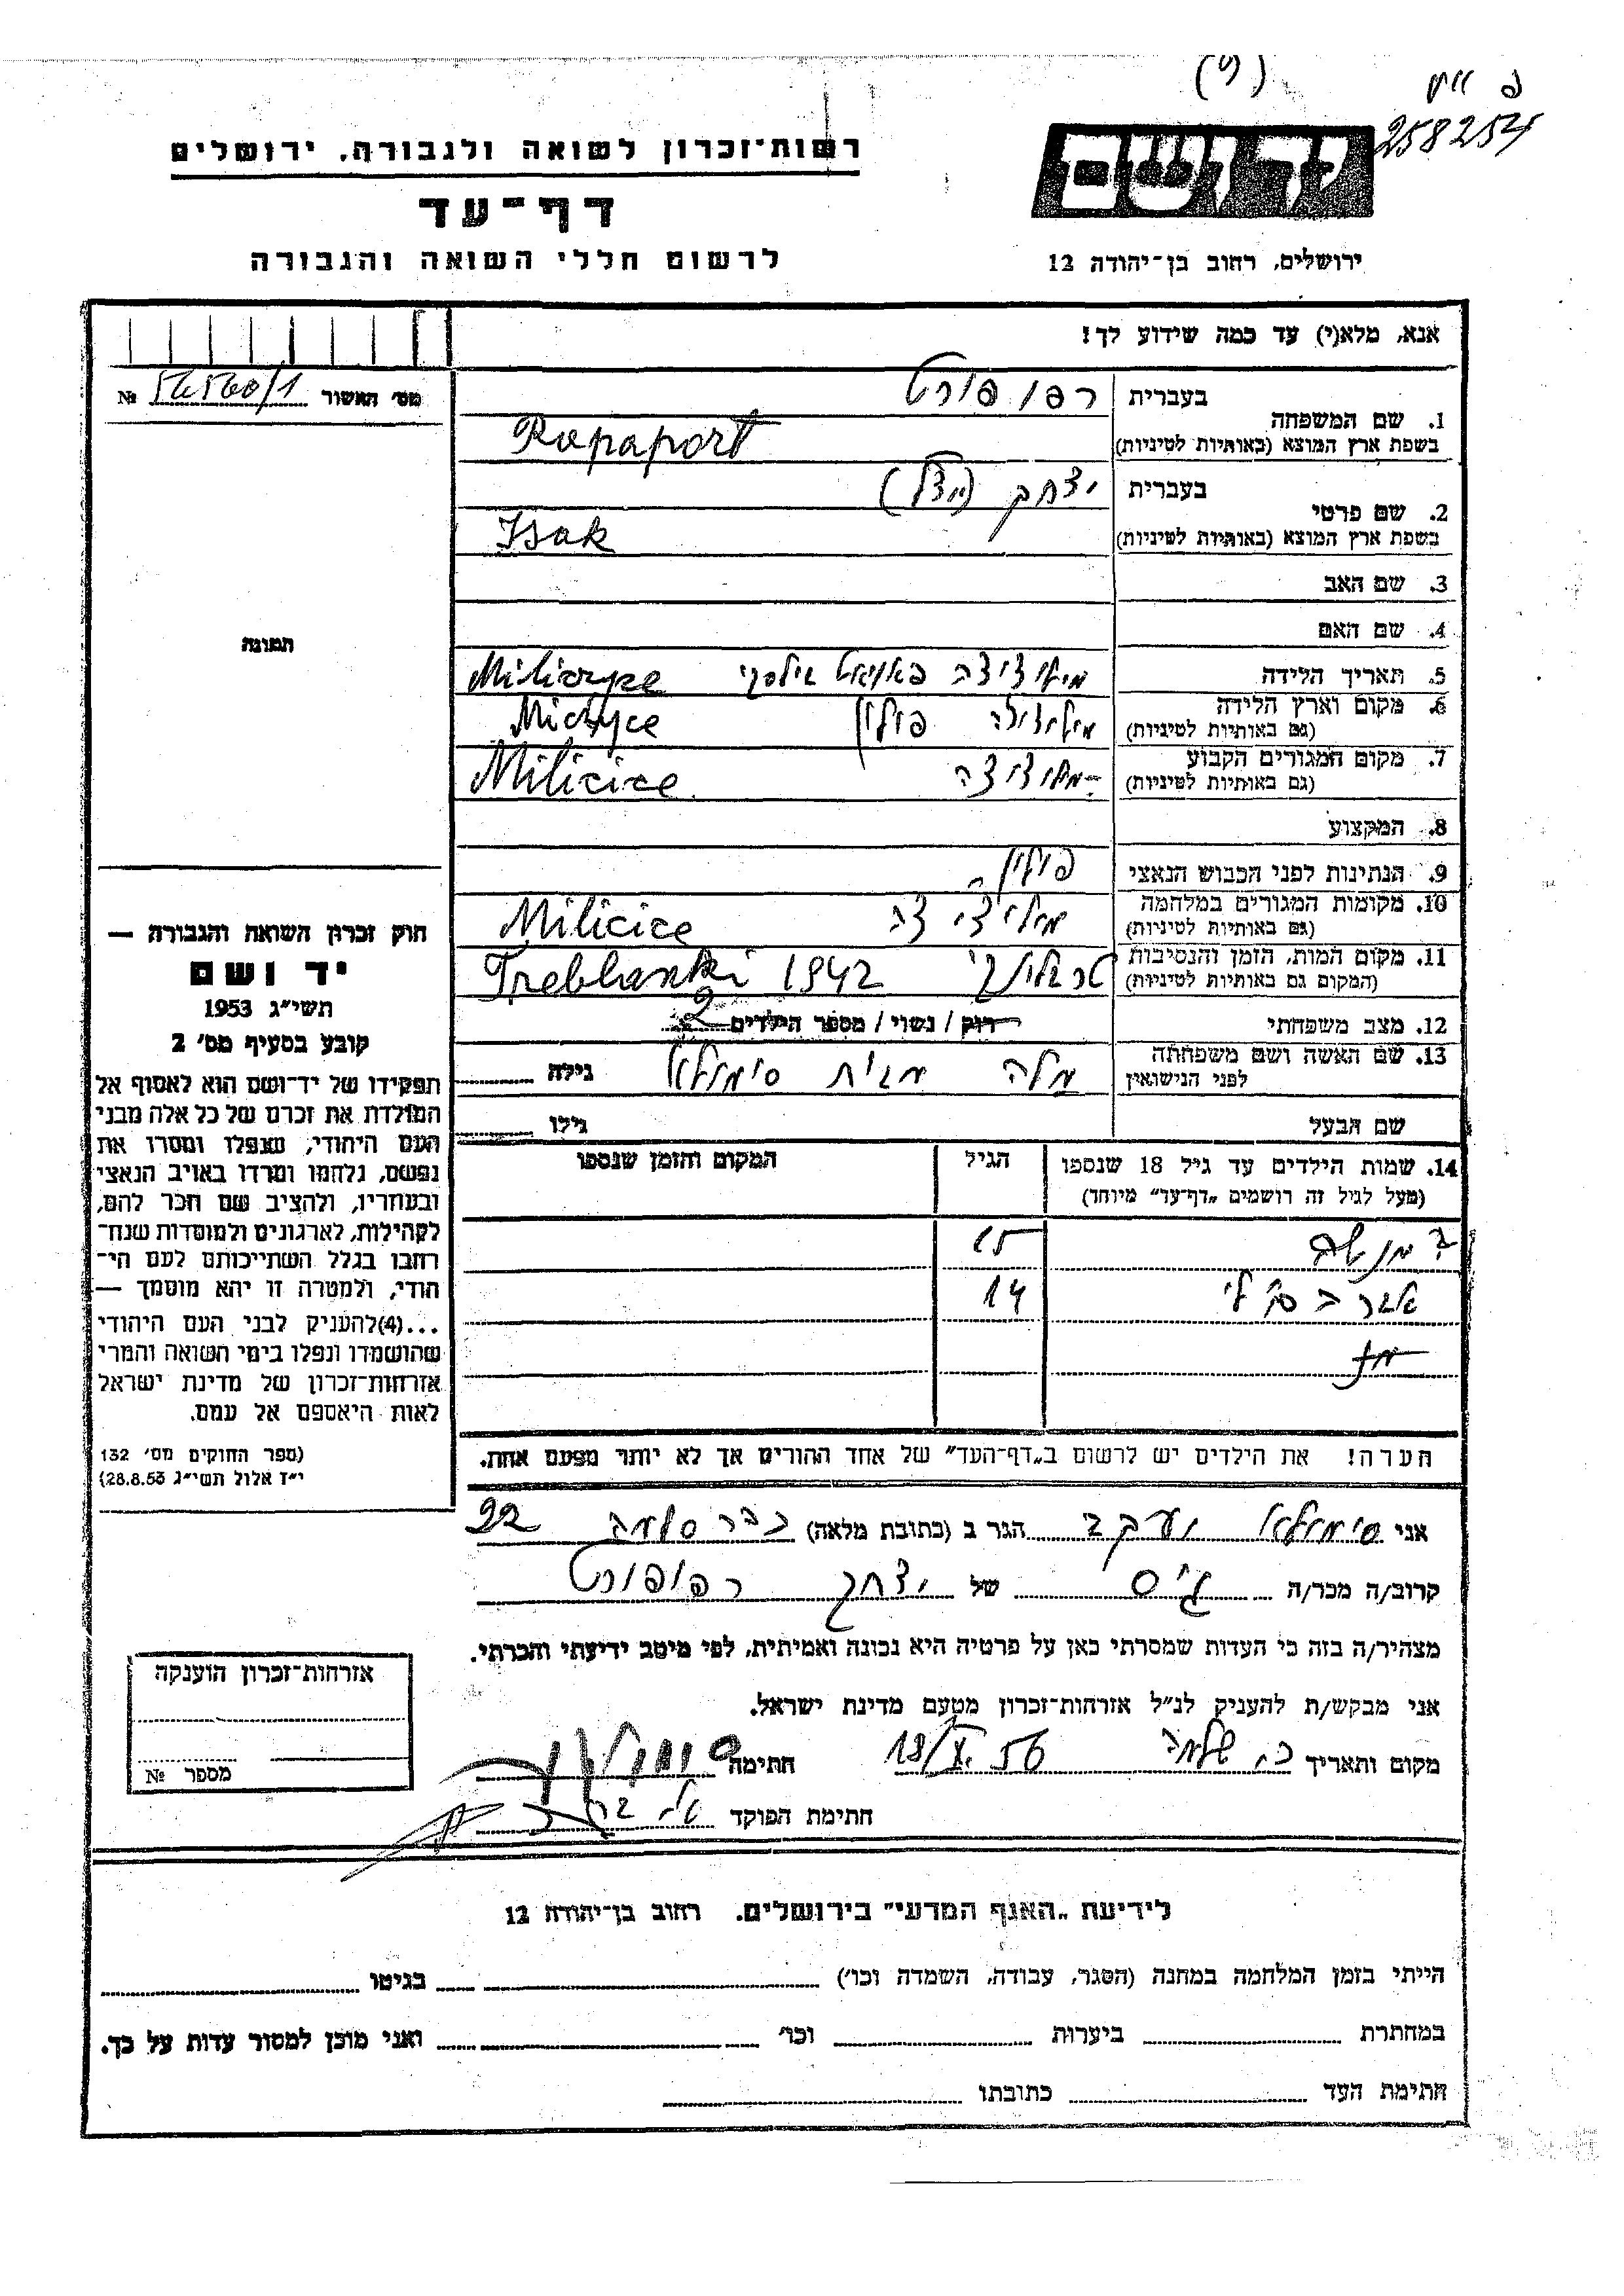 258254
יד ושם
רשות־זכרון לשואה ולגבורה. ירושלים
דף־עד
לרשום חללי השואה והגבורה
ירושלים, רחוב בן־יהודה 12
אנא, מלא(י) עד כמה שידוע לך!
מס׳ האשור №
1. שם המשפחה בעברית רפופורט
בשפת ארץ המוצא (באותיות לטיניות) Rapaport
2. שם פרטי בעברית יצחק
בשפת ארץ המוצא (באותיות לטיניות) Isak
3. שם האב
4. שם האם
תמונה
5. תאריך הלידה
6. מקום וארץ הלידה פולין
(גם באותיות לטיניות)
7. מקום המגורים הקבוע Milicice
(גם באותיות לטיניות)
8. המקצוע
9. הנתינות לפני הכבוש הנאצי פולין
10. מקומות המגורים במלחמה Milicice
(גם באותיות לטיניות)
11. מקום המות, הזמן והנסיבות 1942
(המקום גם באותיות לטיניות)
12. מצב משפחתי רוק / נשוי / מספר הילדים 2
13. שם האשה ושם משפחתה מלה מבית גילה
לפני הנישואין
שם הבעל גילו
14. שמות הילדים עד גיל 18 שנספו הגיל המקום והזמן שנספו
(מעל לגיל זה רושמים „דף־עד” מיוחד)
15
14
הערה! את הילדים יש לרשום ב„דף־העד” של אחד ההורים אך לא יותר מפעם אחת.
חוק זכרון השואה והגבורה —
יד ושם
תשי״ג 1953
קובע בסעיף מס׳ 2
תפקידו של יד־ושם הוא לאסוף אל
המולדת את זכרם של כל אלה מבני
העם היהודי, שנפלו ומסרו את
נפשם, נלחמו ומרדו באויב הנאצי
ובעוזריו, ולהציב שם וזכר להם,
לקהילות, לארגונים ולמוסדות שנח־
רחבו בגלל השתייכותם לעם הי־
הודי, ולמטרה זו יהא מוסמך —
...(4)להעניק לבני העם היהודי
שהושמדו ונפלו בימי השואה והמרי
אזרחות־זכרון של מדינת ישראל
לאות היאספם אל עמם.
(ספר החוקים מס׳ 132
י״ז אלול תשי״ג 28.8.53)
אני יעקב הגר ב (כתובת מלאה) 22
קרוב/ה מכר/ה גיס של יצחק רפופורט
מצהיר/ה בזה כי העדות שמסרתי כאן על פרטיה היא נכונה ואמיתית, לפי מיטב ידיעתי והכרתי.
אני מבקש/ת להעניק לנ״ל אזרחות־זכרון מטעם מדינת ישראל.
מקום ותאריך חתימה
חתימת הפוקד
אזרחות־זכרון הוענקה
מספר №
לידיעת „האגף המדעי” בירושלים. רחוב בן־יהודה 12
הייתי בזמן המלחמה במחנה (הסגר, עבודה, השמדה וכו׳) בגיטו
במחתרת ביערות וכו׳ ואני מוכן למסור עדות על כך.
חתימת העד כתובתו